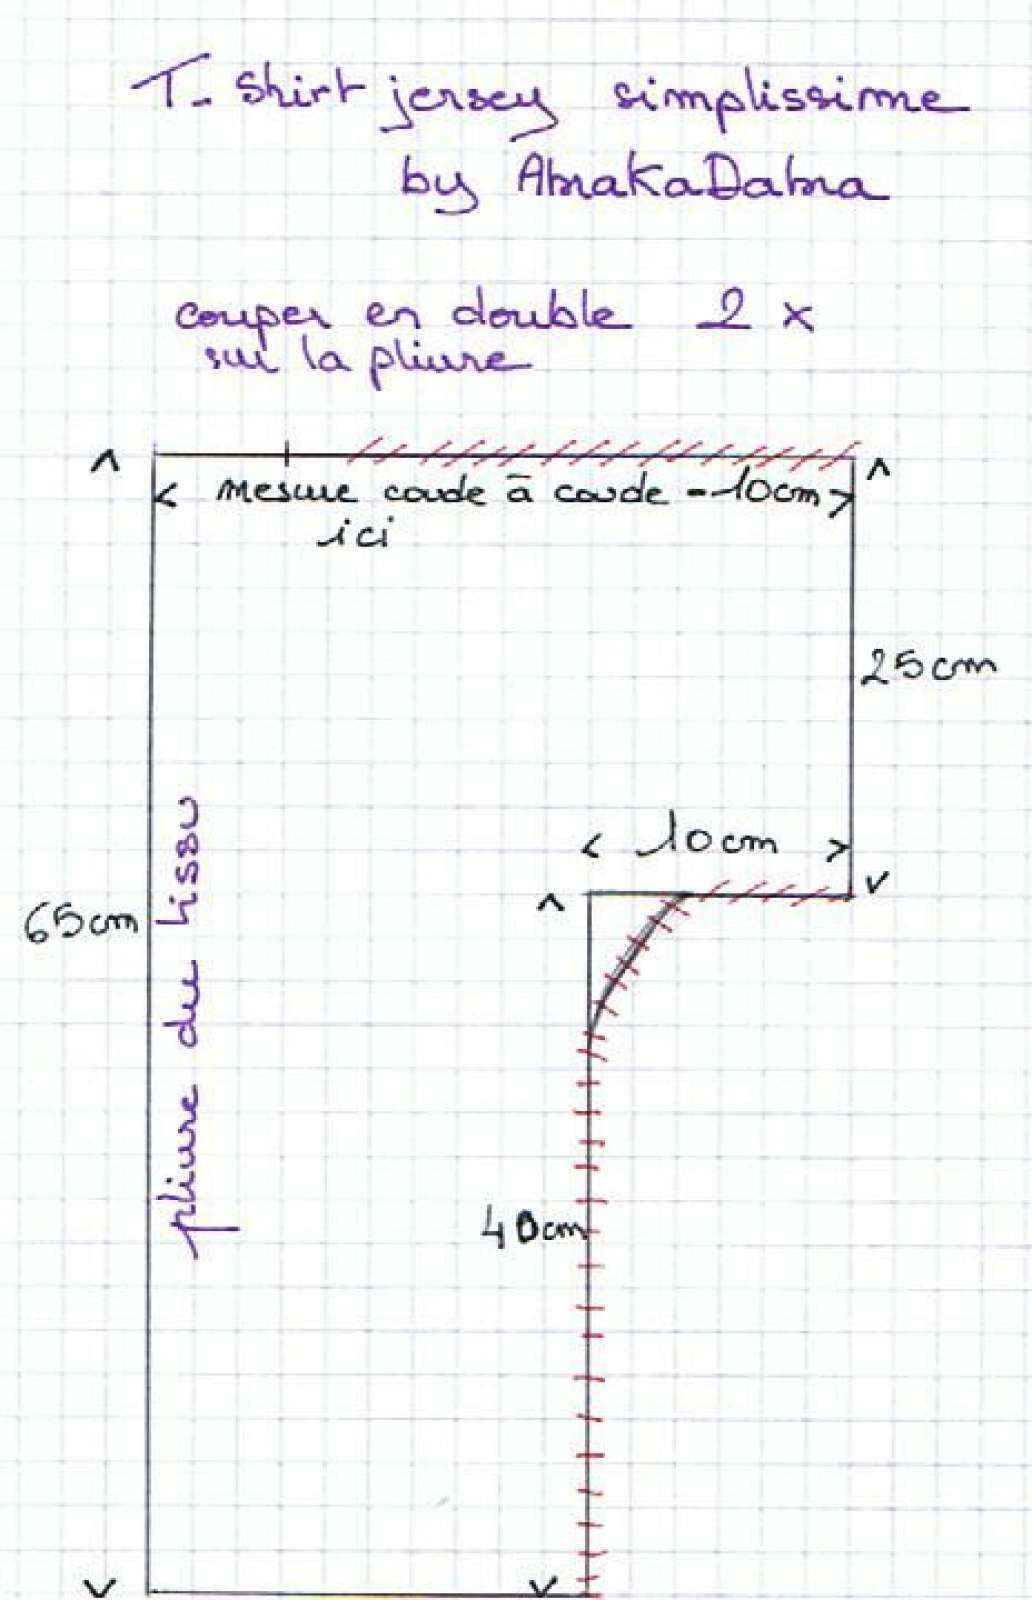 T-Shirt jersey simplissime
by AbrakaDabra
couper en double 2 x
sur la pliure
mesure coude à coude - 10cm
ici
25cm
10cm
65cm
pliure du tissu
40cm